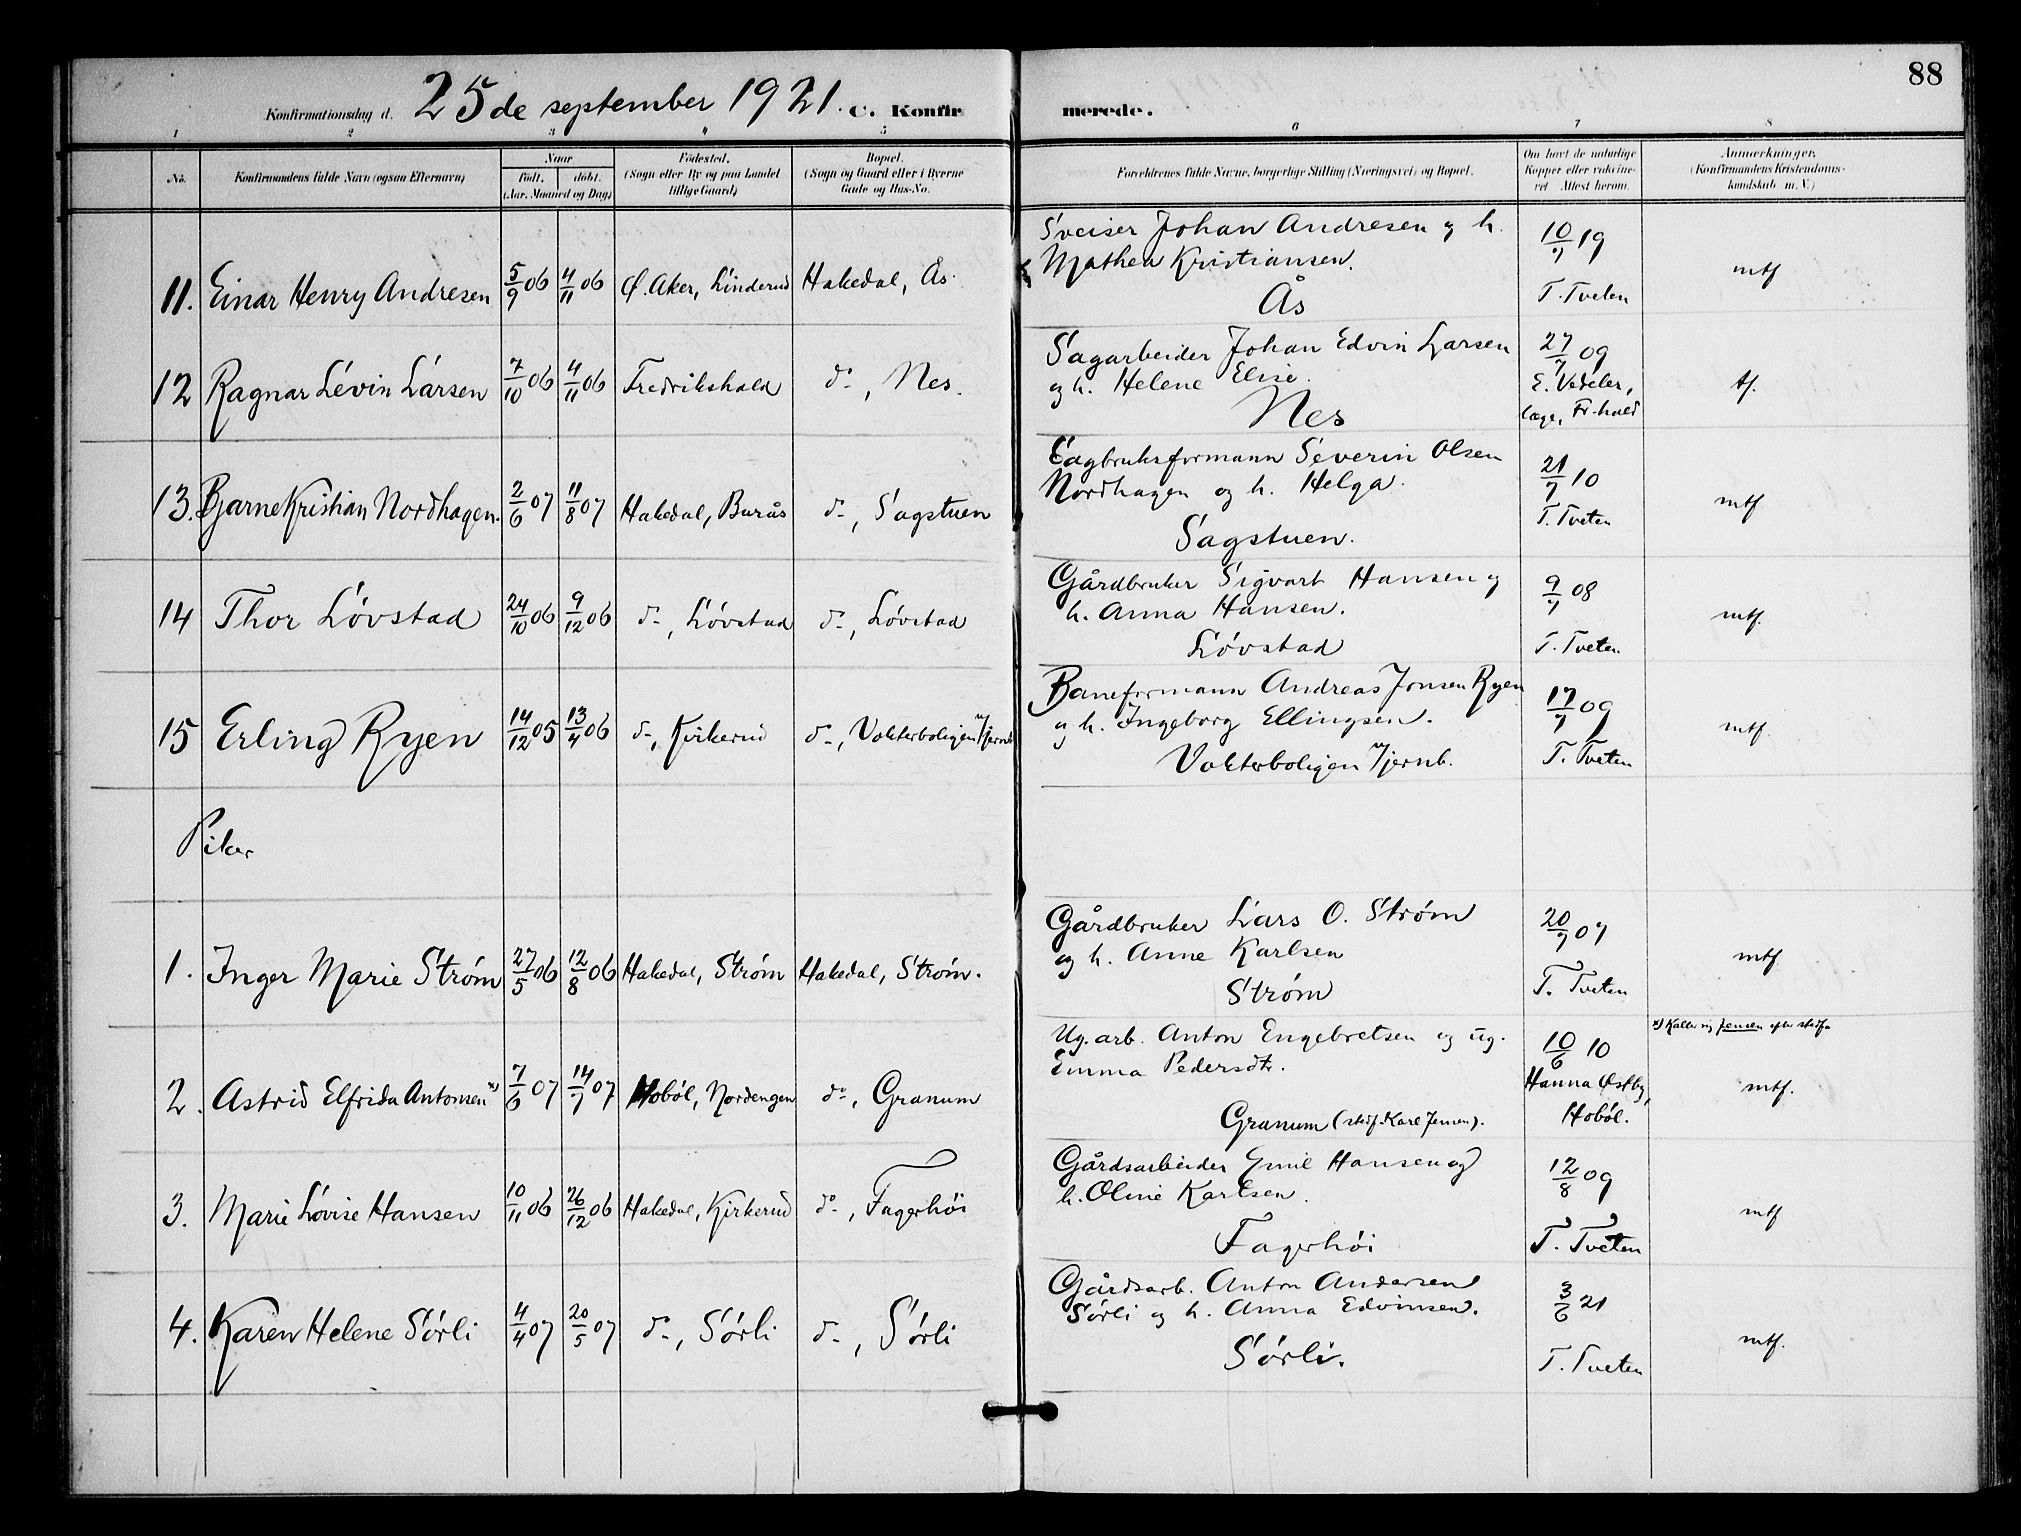 88
Konfirmationsdag d. 25de september 1921. C. Konfirmerede.
1 2 3 4 5 6 7 8
No.
Konfirmandens fulde Navn (ogsaa Efternavn)
Naar
født. døbt.
(Aar, Maaned og Dag)
Fødested.
(Sogn eller By og paa Landet
tillige Gaard)
Bopæl.
(Sogn og Gaard eller i Byerne
Gade og Hus-No.
Forældrenes fulde Navne, borgerlige Stilling (Næringsvei) og Bopæl.
Om havt de naturlige
Kopper eller vakcine-
ret Attest herom.
Anmærkninger.
(Konfirmandens Kristendoms-
kundskab m. V.)
11. Einar Henry Andresen 5/9 06 4/11 06 Ø. Aker, Linderud Hakedal, Ås.
Sveiser Johan Andresen og h.
Mathea Kristiansen.
Ås
10/7 19
T. Tveten
mtf
12 Ragnar Lévin Larsen 7/10 06 4/11 06 Fredrikshald do, Nes.
Sagarbeider Johan Edvin Larsen
og h. Helene Elise.
Nes
27/7 09
E. Vedeler,
læge, Fr-hald
tf.
13. Bjarne Kristian Nordhagen. 2/6 07 11/8 07 Hakedal, Burås do, Sagstuen
Sagbruksformann Severin Olsen
Nordhagen og h. Helga.
Sagstuen.
21/7 10
T. Tveten
mtf
14 Thor Lövstad 24/10 06 9/12 06 do, Lövstad do, Lövstad
Gårdbruker Sigvart Hansen og
h. Anna Hansen.
Lövstad
9/7 08
T. Tveten
mtf.
15 Erling Ryen 14/12 05 13/4 06 do, Kirkerud do, Vokterboligen v/jernb.
Baneformann Andreas Jonsen Ryen
og h. Ingeborg Ellingsen.
Vokterboligen v/jernb.
17/7 09
T. Tveten
mtf.
Piker
1. Inger Marie Ström 27/5 06 12/8 06 Hakedal, Ström Hakedal, Ström.
Gårdbruker Lars O. Ström
og h. Anne Karlsen
Ström
20/7 07
T. Tveten
mtf
2. Astrid Elfrida Antonsen x) 7/6 07 14/7 07 Hobøl, Nordengen do, Granum
Ug. arb. Anton Engebretsen og ug.
Emma Pedersdtr.
Granum (stedf. Karl Jensen).
10/6 10
Hanna Østby,
Hobøl.
x) Kaller sig Jensen efter stedf.
mtf.
3. Marie Lovise Hansen 10/11 06 26/12 06 Hakedal, Kirkerud do, Fagerhöi
Gårdsarbeider Emil Hansen og
h. Oline Karlsen.
Fagerhöi
12/8 09
T. Tveten
mtf
4. Karen Helene Sörli 4/4 07 20/5 07 do, Sörli do, Sörli
Gårdsarb. Anton Andersen
Sörli og h. Anna Edvinsen.
Sörli.
3/6 21
T. Tveten
mtf.